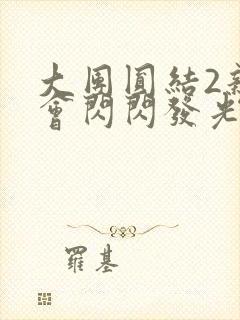 大團圓結2新
會閃閃發光
羅基